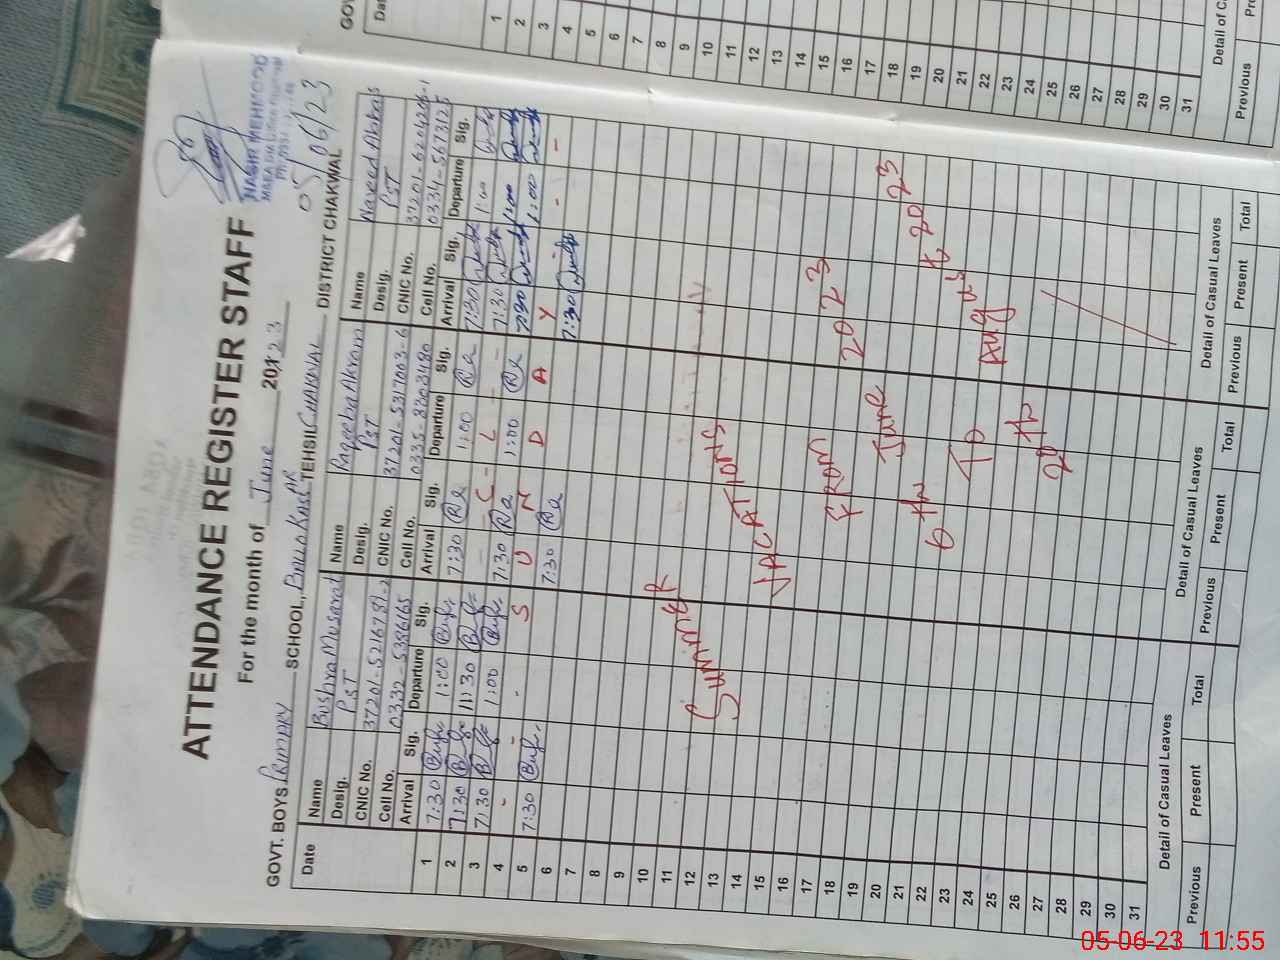 NASIR MEHMOOD
05/06/23
ATTENDANCE REGISTER STAFF
For the month of June 2023
GOVT. BOYS PRIMARY SCHOOL, TEHSIL CHAKWAL DISTRICT CHAKWAL
Date
Name Bushra Musarat Name Name Naveed Abbas
Desig. PST Desig. PST Desig. PST
CNIC No. 37201-5216789-2 CNIC No. 37201-5317003-6 CNIC No.
Cell No. 0332-5386165 Cell No. 0335-8303480 Cell No. 0334-5673125
Arrival Sig. Departure Sig. Arrival Sig. Departure Sig. Arrival Sig. Departure Sig.
1 7:30 1:00 7:30 Ra 1:00 Ra 7:30 1:00
2 7:30 11:30 - C - L - 7:30 1:00
3 7:30 1:00 7:30 Ra 1:00 Ra 7:30 1:00
4 - - - S U N D A Y - -
5 7:30 7:30 Ra 7:30
6
7
8
9
10
11
12
13
14
15
16
17
18
19
20
21
22
23
24
25
26
27
28
29
30
31
SUMMER
VACATIONS
FROM 2023
6th June 2023
TO
20th Aug
Detail of Casual Leaves Detail of Casual Leaves Detail of Casual Leaves
Previous Present Total Previous Present Total Previous Present Total
GOV
Dat
1
2
3
4
5
6
7
8
9
10
11
12
13
14
15
16
17
18
19
20
21
22
23
24
25
26
27
28
29
30
31
Detail of C
Previous Pr
05-06-23 11:55